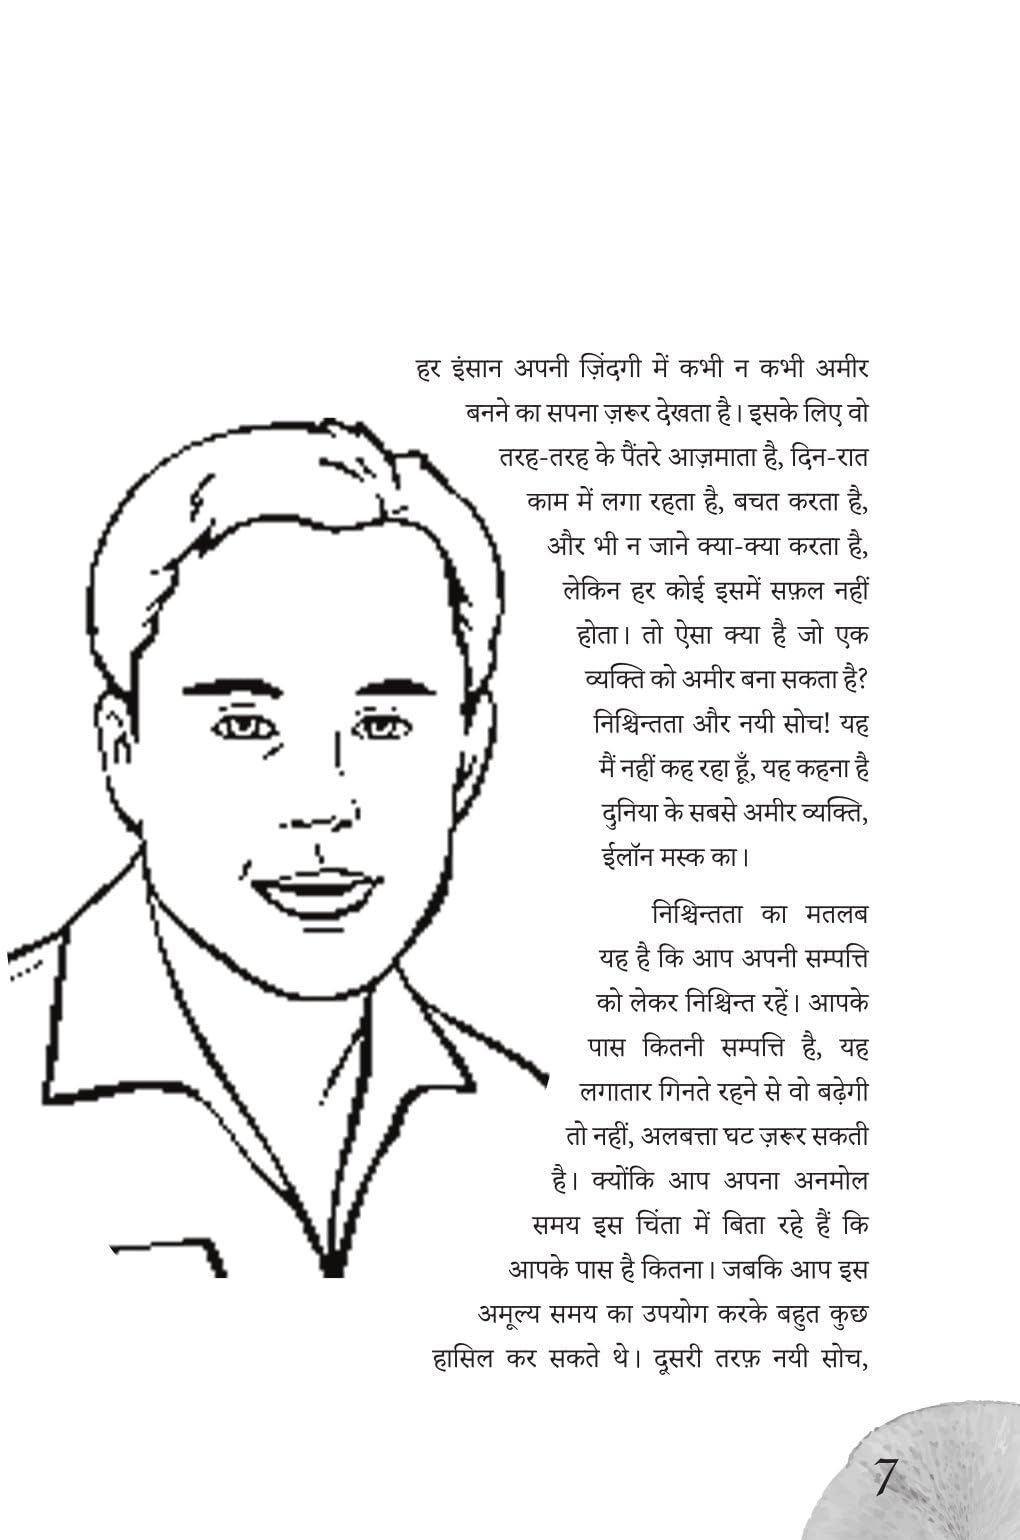 हर इंसान अपनी ज़िंदगी में कभी न कभी अमीर
बनने का सपना ज़रूर देखता है। इसके लिए वो
तरह-तरह के पैंतरे आज़माता है, दिन-रात
काम में लगा रहता है, बचत करता है,
और भी न जाने क्या-क्या करता है,
लेकिन हर कोई इसमें सफ़ल नहीं
होता। तो ऐसा क्या है जो एक
व्यक्ति को अमीर बना सकता है?
निश्चिन्तता और नयी सोच! यह
मैं नहीं कह रहा हूँ, यह कहना है
दुनिया के सबसे अमीर व्यक्ति,
ईलॉन मस्क का।
निश्चिन्तता का मतलब
यह है कि आप अपनी सम्पत्ति
को लेकर निश्चिन्त रहें। आपके
पास कितनी सम्पत्ति है, यह
लगातार गिनते रहने से वो बढ़ेगी
तो नहीं, अलबत्ता घट ज़रूर सकती
है। क्योंकि आप अपना अनमोल
समय इस चिंता में बिता रहे हैं कि
आपके पास है कितना। जबकि आप इस
अमूल्य समय का उपयोग करके बहुत कुछ
हासिल कर सकते थे। दूसरी तरफ़ नयी सोच,
7